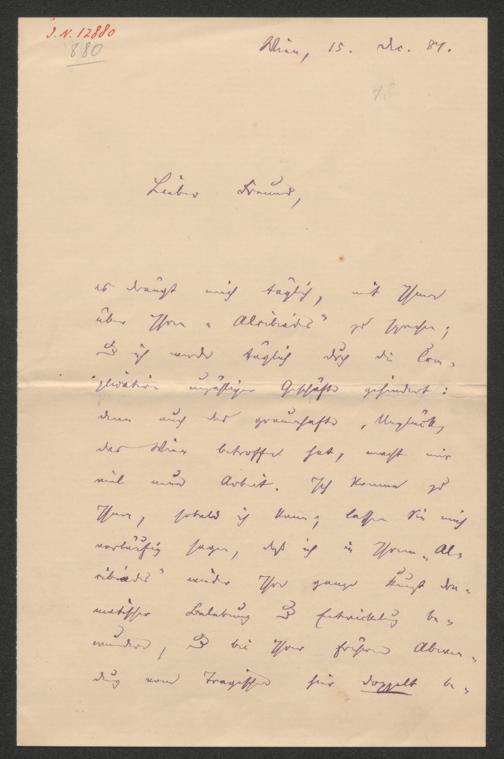 J. N. 12880
880
Wien, 15. Dec. 81.
Lieber Freund,
es drängt mich täglich, mit Ihnen
über Ihren „Alkibiades" zu sprechen;
u ich werde täglich durch die Com-
plication unzähliger Geschäfte gehindert:
denn auch das grauenhafte Unglück,
das Wien betroffen hat, macht mir
viel neue Arbeit. Ich komme zu
Ihnen, sobald ich kann; lassen Sie mich
vorläufig sagen, daß ich in Ihrem „Al-
kibiades" wieder Ihre ganze Kunst dra-
matischer Belebung u Entwicklung be-
wundere, u bei Ihrer frühern Abwen-
dung vom Tragischen hier doppelt be-